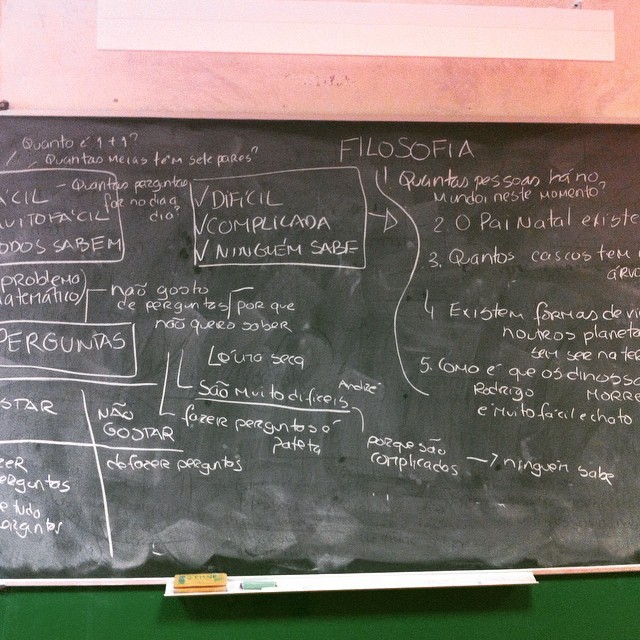 Quanto é 1+1?
Quantas meias têm sete pares?
Quantas perguntas
faz no dia a
dia?
ÁCIL
UITO FÁCIL
ODOS SABEM
✓ DIFÍCIL
✓ COMPLICADA
✓ NINGUÉM SABE
FILOSOFIA
1 Quantas pessoas há no
mundo neste momento?
2. O Pai Natal existe
3. Quantos cascos tem
árvo
4 Existem formas de vi
noutros planeta
sem ser na te
5. Como é que os dinoss
Rodrigo morre
é muito fácil e chato
problema
atemático
não gosto
de perguntas porque
não quero saber
PERGUNTAS
Loura seca
São muito difíceis André
fazer perguntas é
pateta
porque são
complicados → ninguém sabe
STAR
NÃO
GOSTAR
zer
erguntas
e tudo
de fazer perguntas